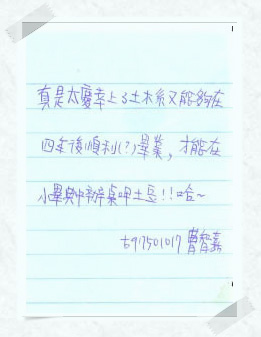 真是太慶幸上了土木系又能夠在
四年後順利(?)畢業，才能在
小畢典中辦桌呷土長!!哈~
b97501017 曹智嘉